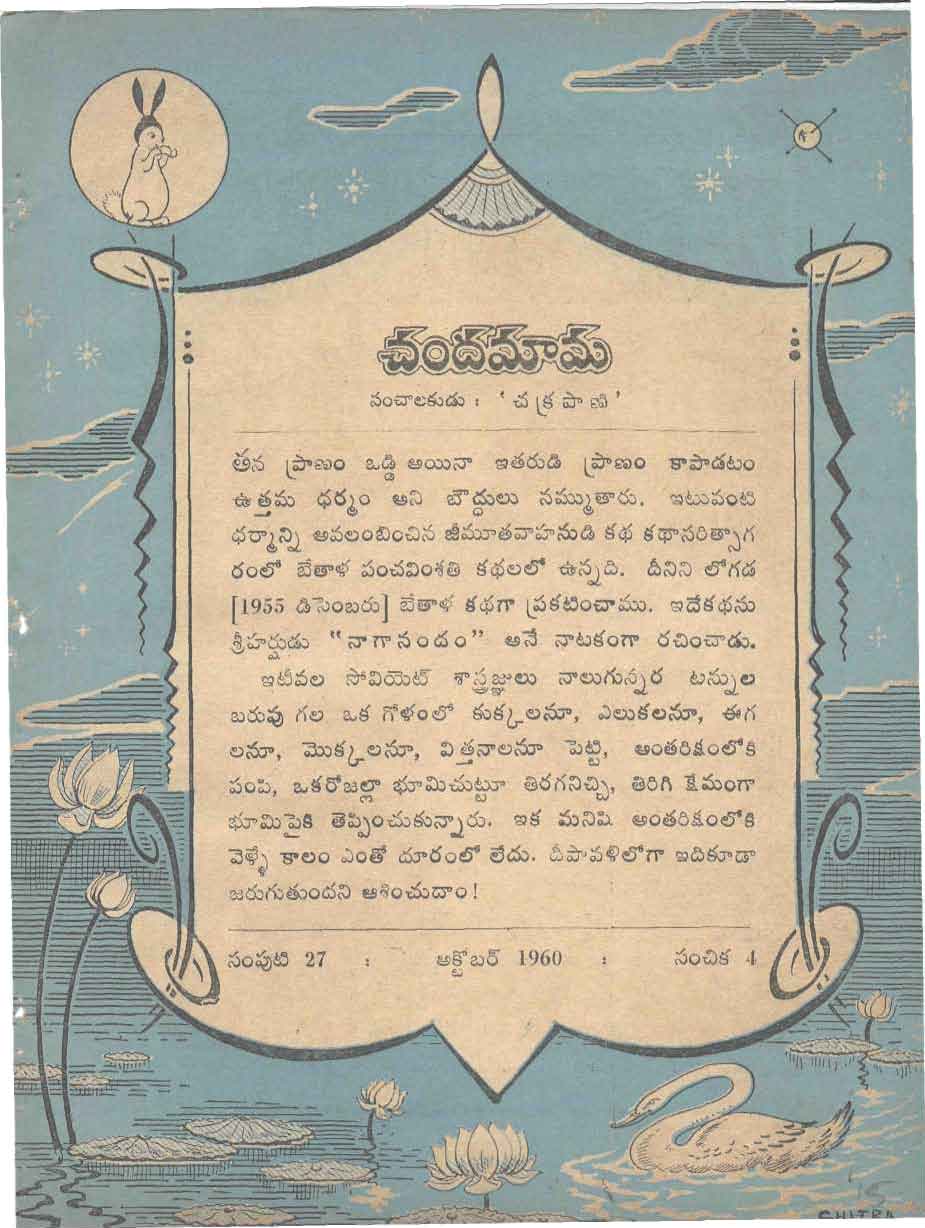 చందమామ
సంచాలకుడు : ' చ క్ర పా ణి '
తన ప్రాణం ఒడ్డి అయినా ఇతరుడి ప్రాణం కాపాడటం
ఉత్తమ ధర్మం అని బౌద్ధులు నమ్ముతారు. ఇటువంటి
ధర్మాన్ని అవలంబించిన జీమూతవాహనుడి కథ కథాసరిత్సాగ
రంలో బేతాళ పంచవింశతి కథలలో ఉన్నది. దీనిని లోగడ
[1955 డిసెంబరు] బేతాళ కథగా ప్రకటించాము. ఇదేకథను
శ్రీహర్షుడు "నాగానందం" అనే నాటకంగా రచించాడు.
ఇటీవల సోవియెట్ శాస్త్రజ్ఞులు నాలుగున్నర టన్నుల
బరువు గల ఒక గోళంలో కుక్కలనూ, ఎలుకలనూ, ఈగ
లనూ, మొక్కలనూ, విత్తనాలనూ పెట్టి, అంతరిక్షంలోకి
పంపి, ఒకరోజల్లా భూమిచుట్టూ తిరగనిచ్చి, తిరిగి క్షేమంగా
భూమిపైకి తెప్పించుకున్నారు. ఇక మనిషి అంతరిక్షంలోకి
వెళ్ళే కాలం ఎంతో దూరంలో లేదు. దీపావళిలోగా ఇదికూడా
జరుగుతుందని ఆశించుదాం!
సంపుటి 27 : అక్టోబర్ 1960 : సంచిక 4
CHITRA